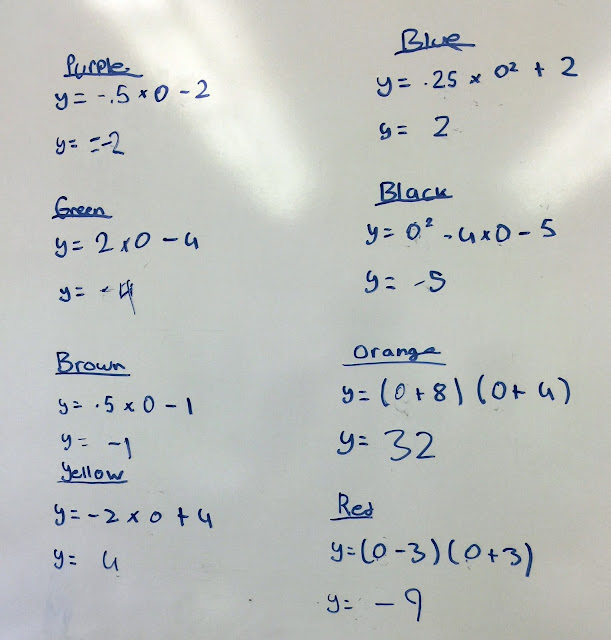 Purple
y = -.5 × 0 - 2
y = -2
Green
y = 2 × 0 - 4
y = -4
Brown
y = .5 × 0 - 1
y = -1
Yellow
y = -2 × 0 + 4
y = 4
Blue
y = .25 × 0² + 2
y = 2
Black
y = 0² - 4 × 0 - 5
y = -5
Orange
y = (0 + 8) (0 + 4)
y = 32
Red
y = (0 - 3) (0 + 3)
y = -9